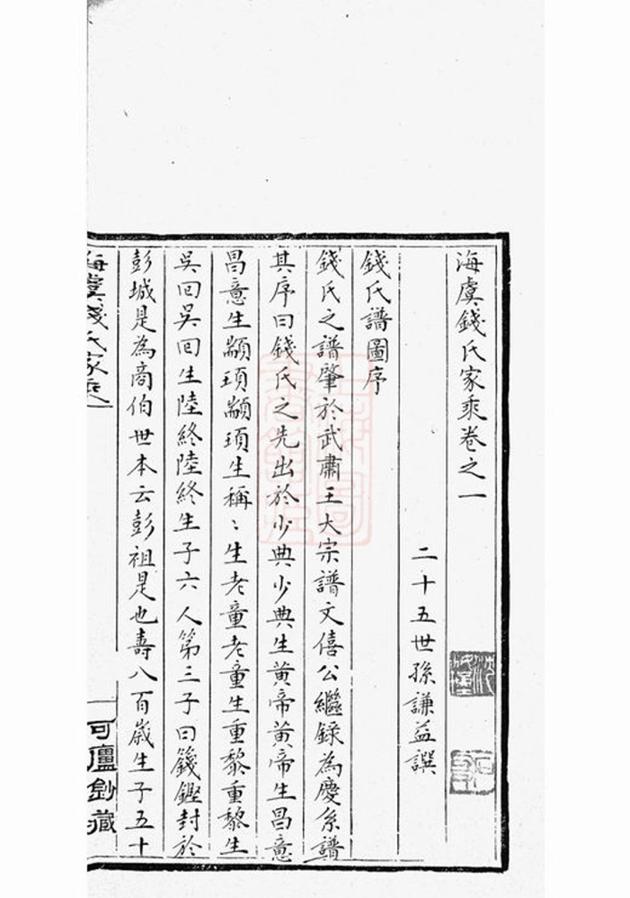 海虞錢氏家乘卷之一
二十五世孫謙益譔
錢氏譜圖序
錢氏之譜肇於武肅王大宗譜文僖公繼錄為慶系譜
其序曰錢氏之先出於少典少典生黃帝黃帝生昌意
昌意生顓頊顓頊生稱〻生老童老童生重黎重黎生
吳回吳回生陸終陸終生子六人第三子曰籛鏗封於
彭城是為商伯世本云彭祖是也壽八百歲生子五十
海虞錢氏家乘
可廬鈔藏